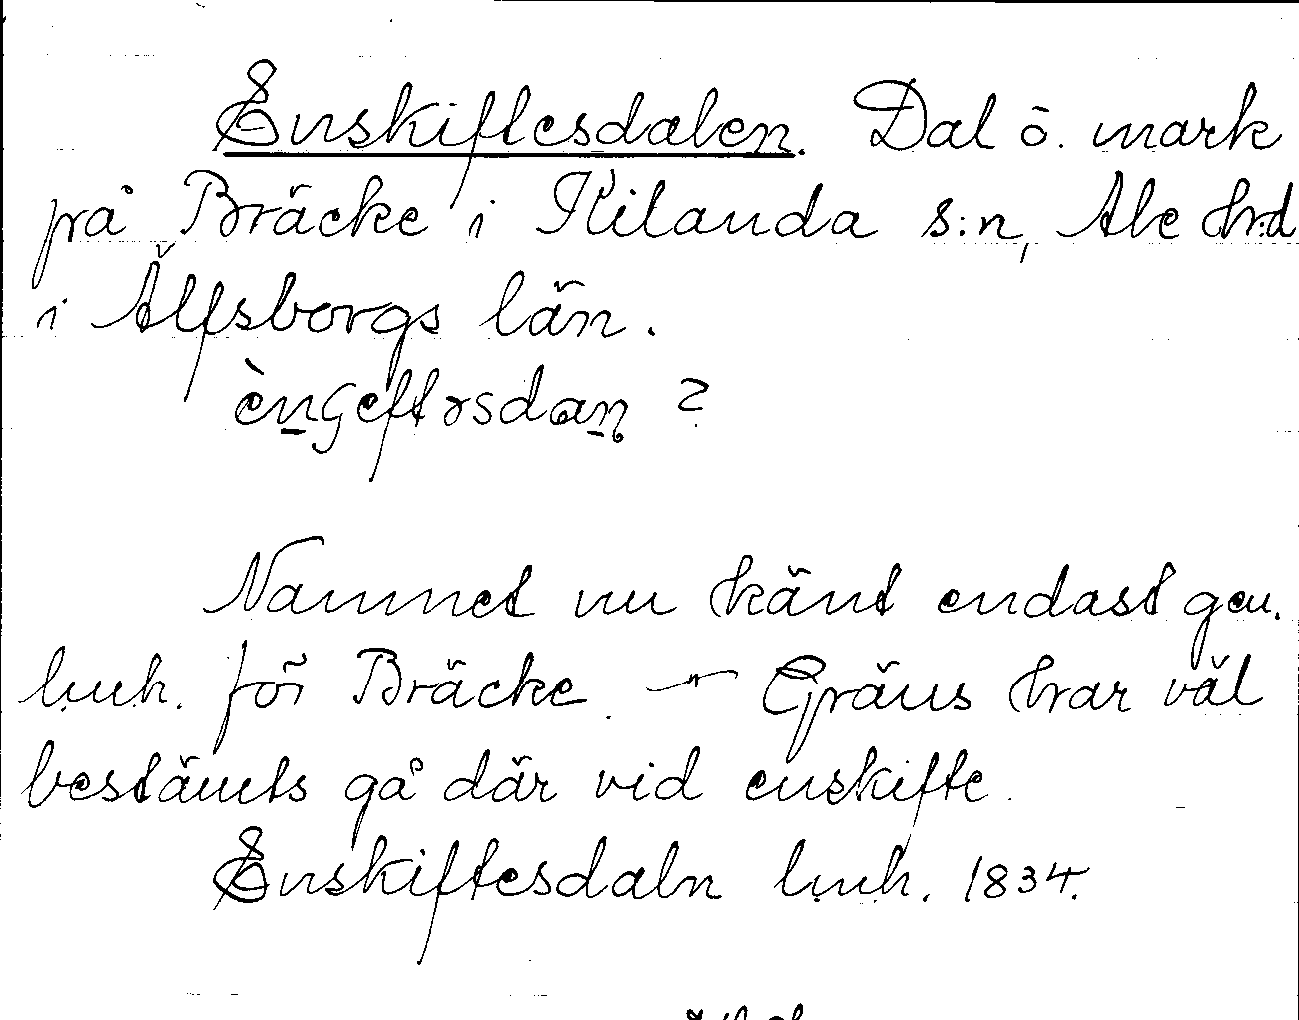 Enskiftesdalen. Dal ö. mark
på Bräcke i Kilanda s:n, Ale hrd
i Älfsborgs län.
?
Namnet nu känt endast gen.
lmh. för Bräcke. — Gräns har väl
bestämts gå där vid enskifte.
Enskiftesdaln lmh. 1834.